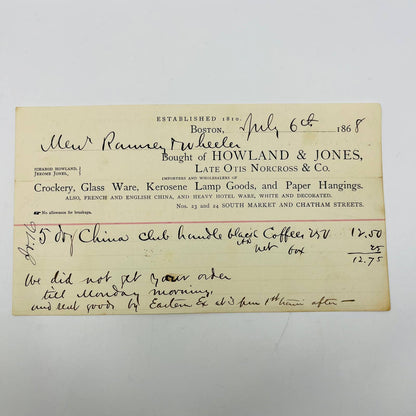 ESTABLISHED 1810.
BOSTON, July 6th 1868
Messrs Ramsey & Wheeler
Bought of HOWLAND & JONES,
ICHABOD HOWLAND,
JEROME JONES,
LATE OTIS NORCROSS & CO.
IMPORTERS AND WHOLESALERS OF
Crockery, Glass Ware, Kerosene Lamp Goods, and Paper Hangings.
ALSO, FRENCH AND ENGLISH CHINA, AND HEAVY HOTEL WARE, WHITE AND DECORATED.
Nos. 23 and 24 SOUTH MARKET AND CHATHAM STREETS.
No allowance for breakage.
5 doz China club handle black Coffees 250 12.50
net box 25
12.75
We did not get your order
till Monday morning,
and sent goods by Eastern Ex at 3 pm 1st train after